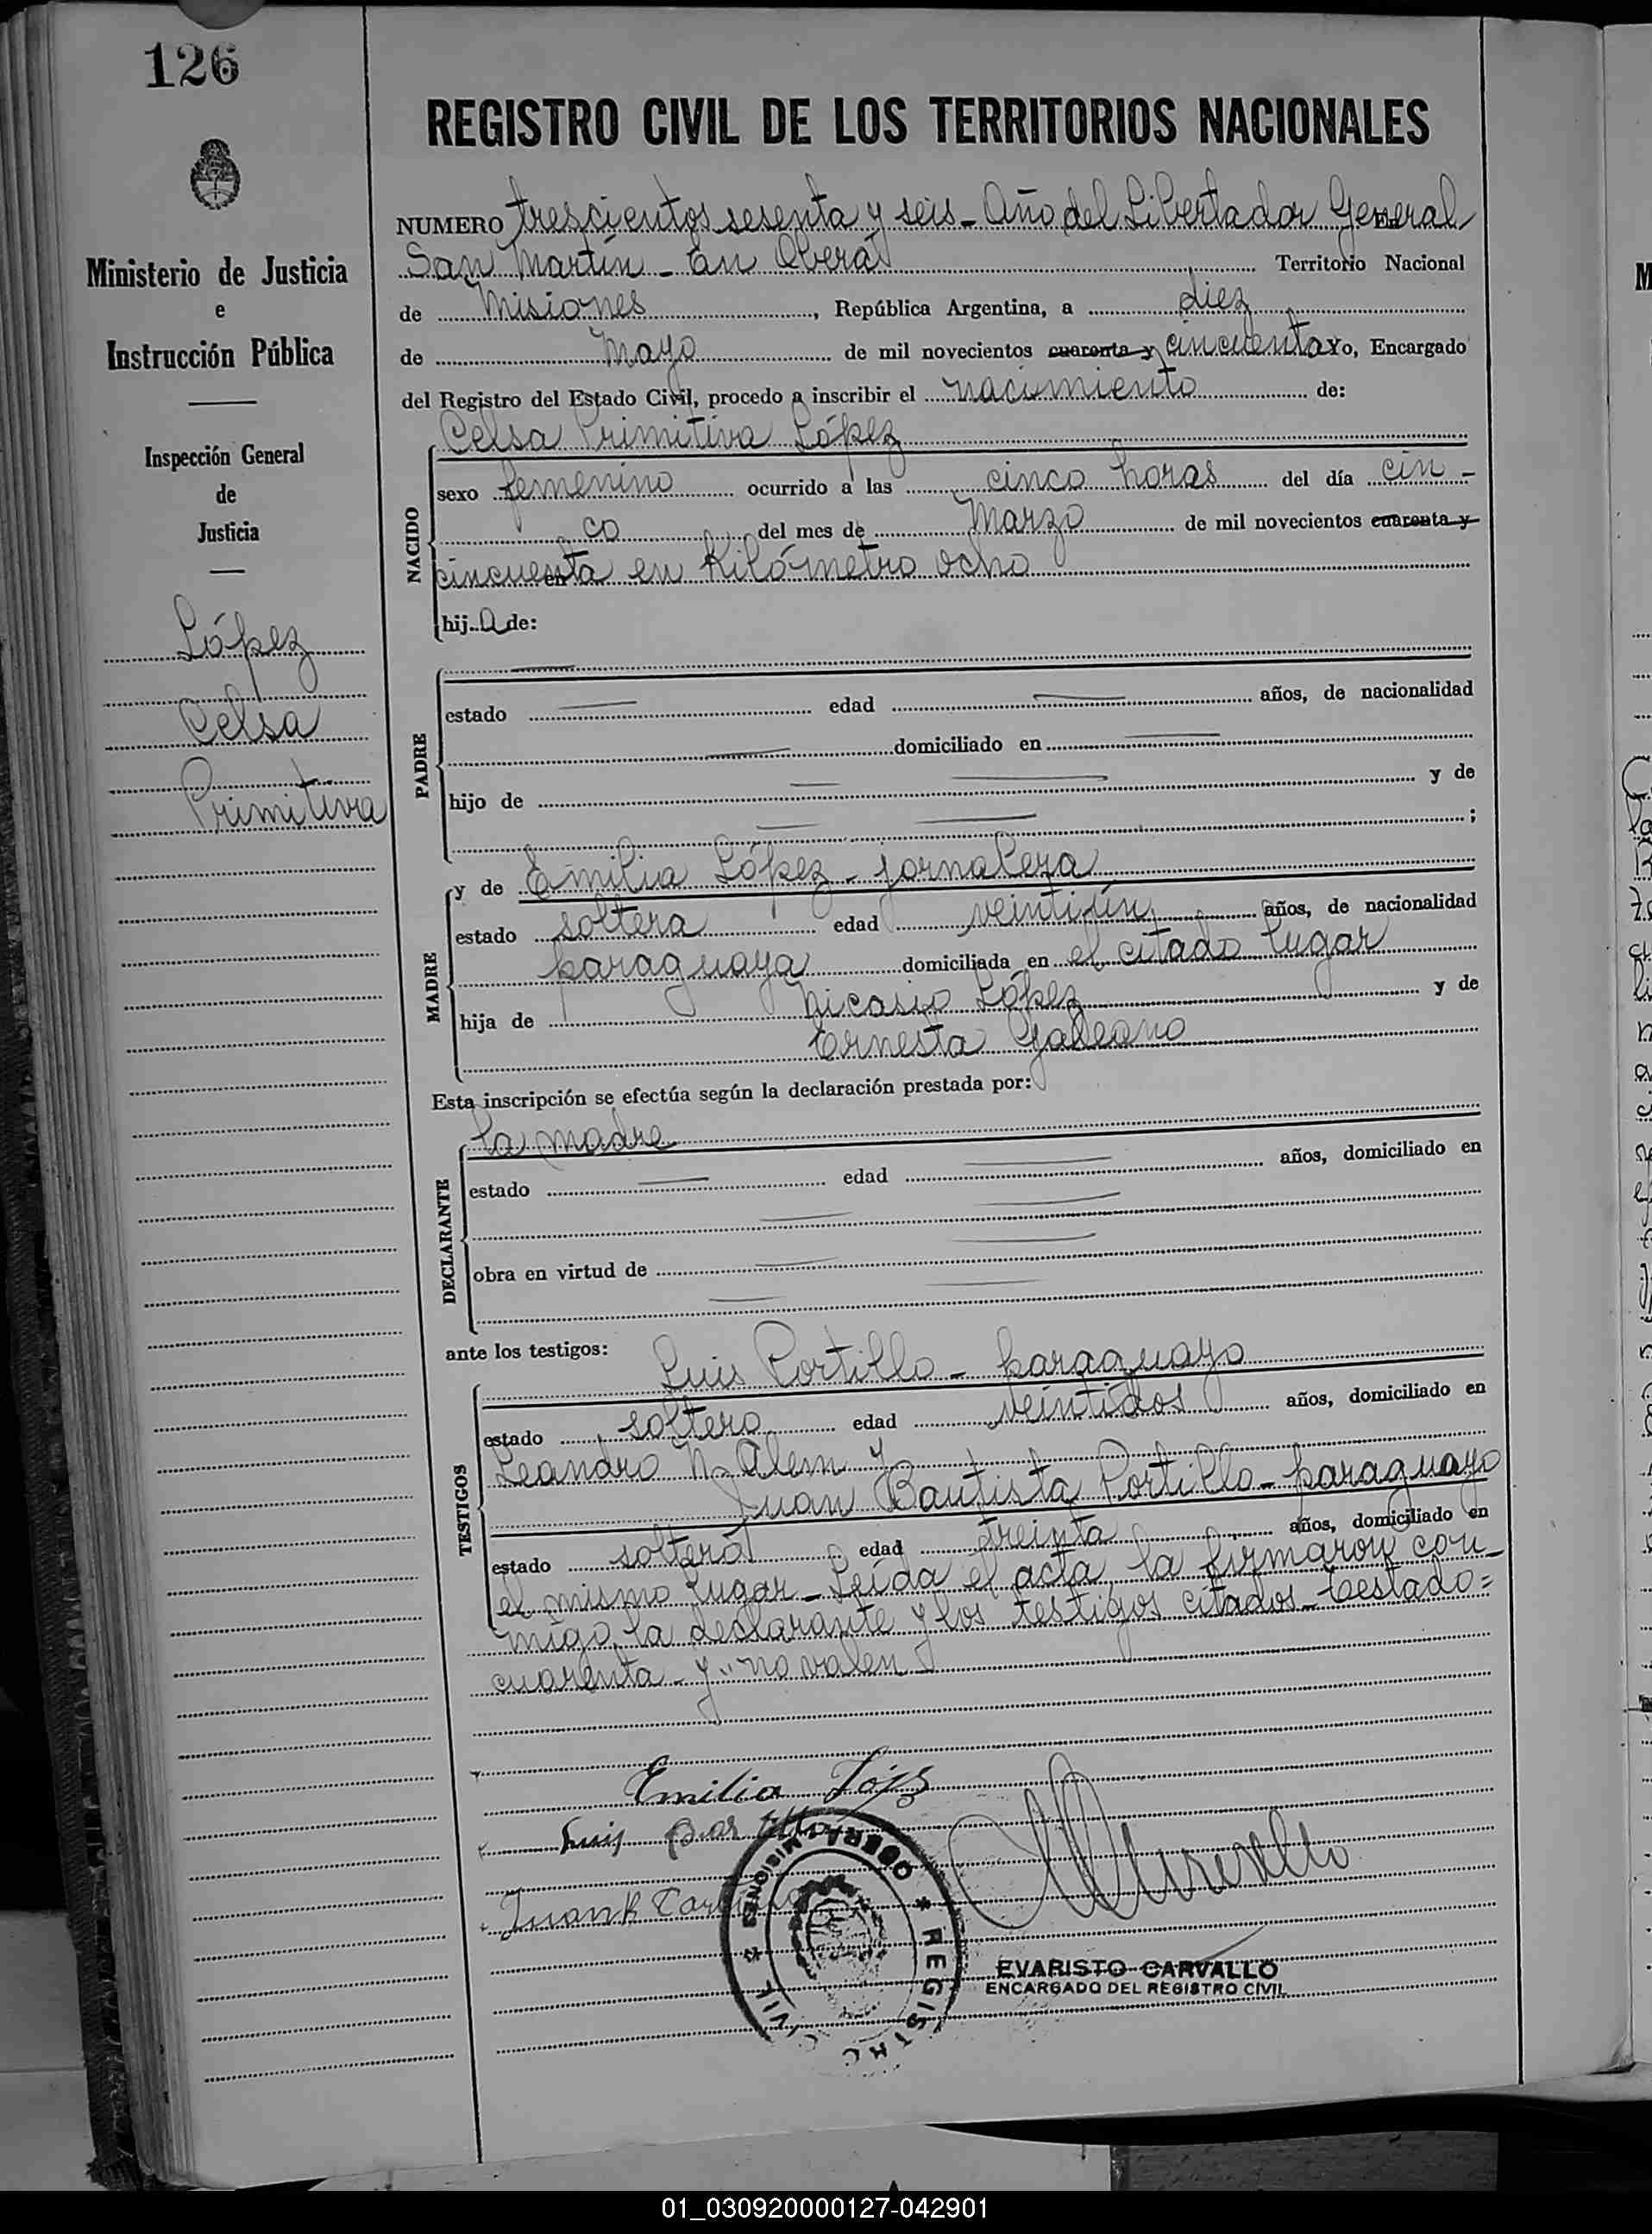 126
REGISTRO CIVIL DE LOS TERRITORIOS NACIONALES
Ministerio de Justicia
e
Instrucción Pública
Inspección General
de
Justicia
López
Celsa
Primitiva
NUMERO trescientos sesenta y seis - Año del Libertador General
San Martín - En Oberá Territorio Nacional
de Misiones, República Argentina, a diez
de Mayo de mil novecientos cuarenta y cincuenta Yo, Encargado
del Registro del Estado Civil, procedo a inscribir el nacimiento de:
NACIDO
Celsa Primitiva López
sexo femenino ocurrido a las cinco horas del día cin-
co del mes de Marzo de mil novecientos cuarenta y
cincuenta en Kilómetro ocho
hija de:
PADRE
estado edad años, de nacionalidad
domiciliado en
hijo de y de
;
MADRE
y de Emilia López - jornalera
estado soltera edad veintiún años, de nacionalidad
paraguaya domiciliada en el citado lugar
hija de Nicasio López y de
Ernesta Galeano
Esta inscripción se efectúa según la declaración prestada por:
DECLARANTE
la madre
estado edad años, domiciliado en
obra en virtud de
ante los testigos:
TESTIGOS
Luis Portillo - paraguayo
estado soltero edad veintidos años, domiciliado en
Leandro N. Alem y
Juan Bautista Portillo - paraguayo
estado soltero edad treinta años, domiciliado en
el mismo lugar - Leída el acta, la firmaron con-
migo, la declarante y los testigos citados - Testado =
cuarenta - y " no valen
Emilia
Luis
OBERA MISIONES * REGISTRO CIVIL *
EVARISTO CARVALLO
ENCARGADO DEL REGISTRO CIVIL
01_030920000127-042901